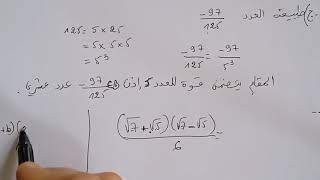 ج) طبيعة العدد -97/125
125 = 5 × 25
= 5 × 5 × 5
= 5³
-97/125 = -97/5³
المقام يتضمن قوة للعدد 5, إذن -97/125 عدد عشري.
(√7 + √5)(√7 - √5)/6 =
+b)(a